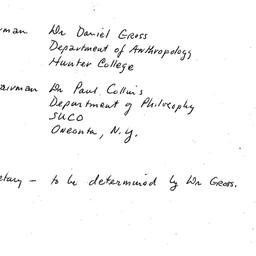 rman Dr Daniel Gross
Department of Anthropology
Hunter College
airman Dr Paul Collins
Department of Philosophy
SUCO
Oneonta, N.Y.
etary – to be determined by Dr Gross.